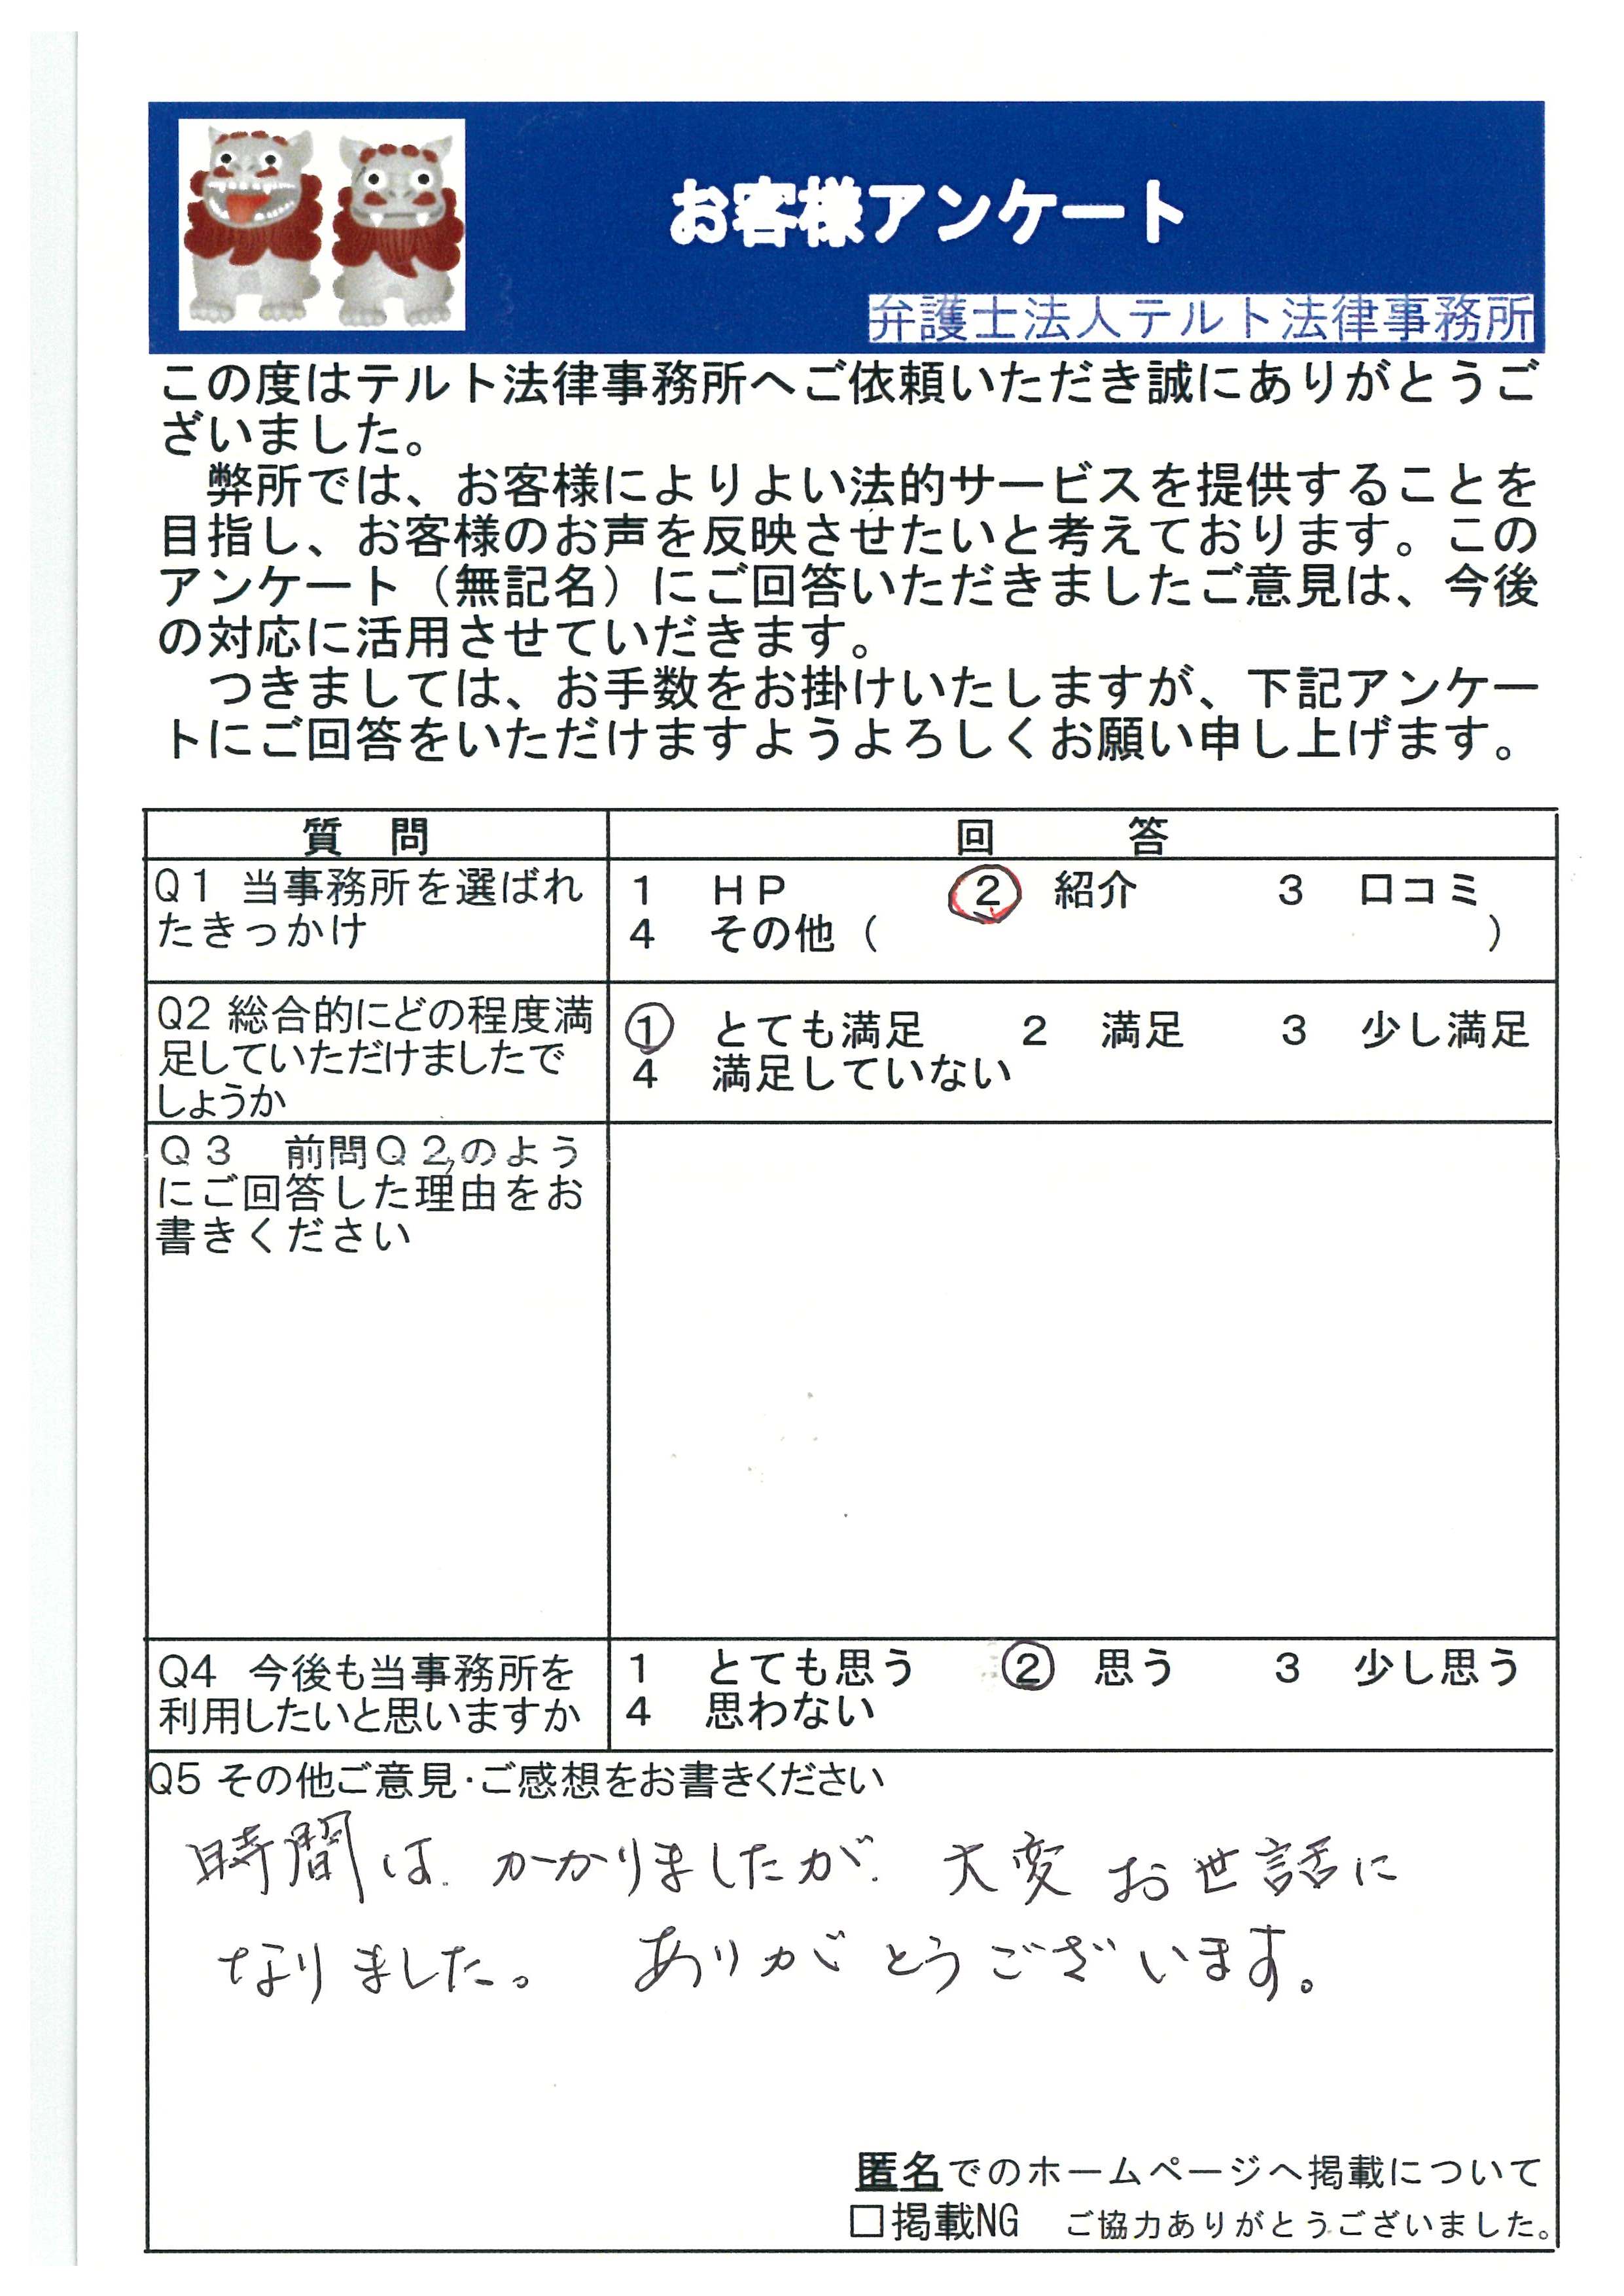 お客様アンケート
弁護士法人テルト法律事務所
この度はテルト法律事務所へご依頼いただき誠にありがとうご
ざいました。
弊所では、お客様によりよい法的サービスを提供することを
目指し、お客様のお声を反映させたいと考えております。この
アンケート（無記名）にご回答いただきましたご意見は、今後
の対応に活用させていだきます。
つきましては、お手数をお掛けいたしますが、下記アンケー
トにご回答をいただけますようよろしくお願い申し上げます。
質　問　回　答
Q1 当事務所を選ばれ
たきっかけ
1　HP　2　紹介　3　口コミ
4　その他（　）
Q2 総合的にどの程度満
足していただけましたで
しょうか
1　とても満足　2　満足　3　少し満足
4　満足していない
Q3　前問Q2のよう
にご回答した理由をお
書きください
Q4　今後も当事務所を
利用したいと思いますか
1　とても思う　2　思う　3　少し思う
4　思わない
Q5 その他ご意見・ご感想をお書きください
時間は かかりましたが、大変 お世話に
なりました。 ありがとうございます。
匿名でのホームページへ掲載について
□掲載NG　ご協力ありがとうございました。